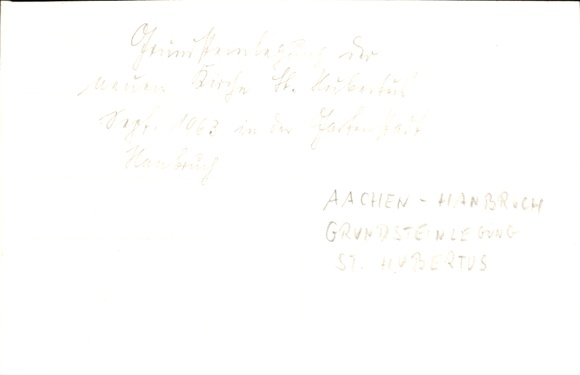 Grundsteinlegung der
neuen Kirche St. Hubertus
Sept. 1963 in der Gartenstadt
Hanbruch
AACHEN - HANBRUCH
GRUNDSTEINLEGUNG
ST. HUBERTUS